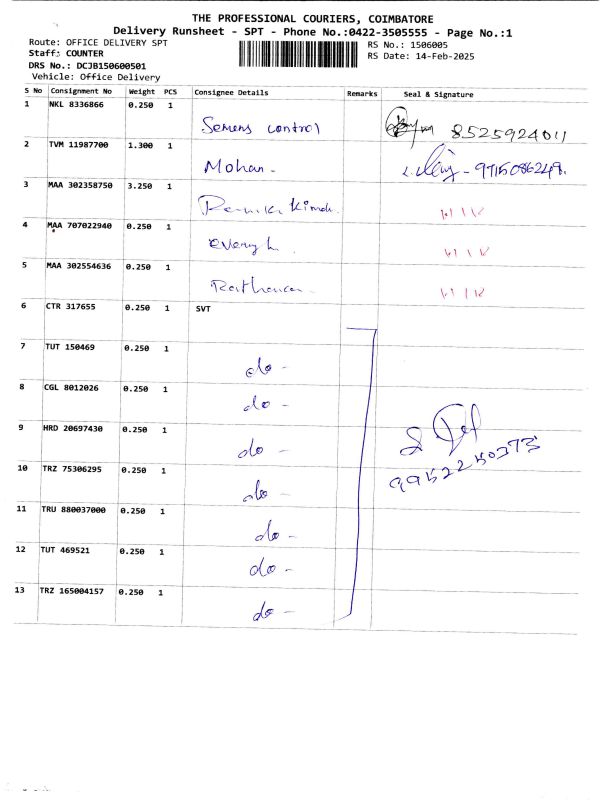 THE PROFESSIONAL COURIERS, COIMBATORE
Delivery Runsheet - SPT - Phone No.:0422-3505555 - Page No.:1
Route: OFFICE DELIVERY SPT
RS No.: 1506005
Staff: COUNTER
RS Date: 14-Feb-2025
DRS No.: DCJB150600501
Vehicle: Office Delivery
S No Consignment No Weight PCS Consignee Details Remarks Seal & Signature
1 NKL 8336866 0.250 1
control 8525924011
2 TVM 11987700 1.300 1
Mohan - 9715086249.
3 MAA 302358750 3.250 1
4 MAA 707022940 0.250 1
5 MAA 302554636 0.250 1
6 CTR 317655 0.250 1 SVT
7 TUT 150469 0.250 1
do -
8 CGL 8012026 0.250 1
do -
9 HRD 20697430 0.250 1
do -
9952250373
10 TRZ 75306295 0.250 1
do -
11 TRU 880037000 0.250 1
do -
12 TUT 469521 0.250 1
do -
13 TRZ 165004157 0.250 1
do -